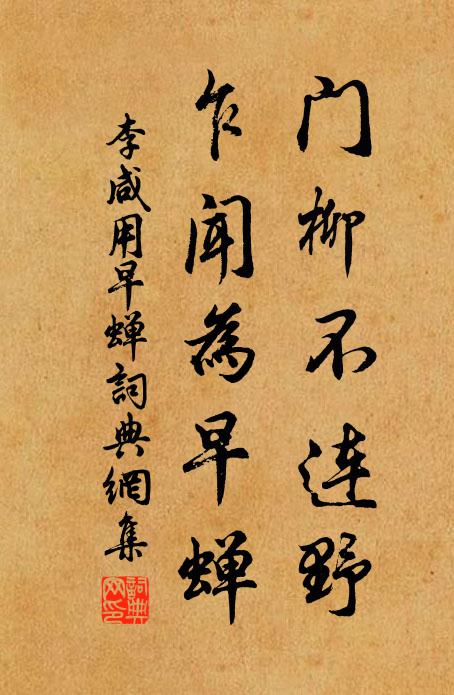 门柳不連野
乍闻為早蝉
李咸用早蝉詞典網集
詞典网印